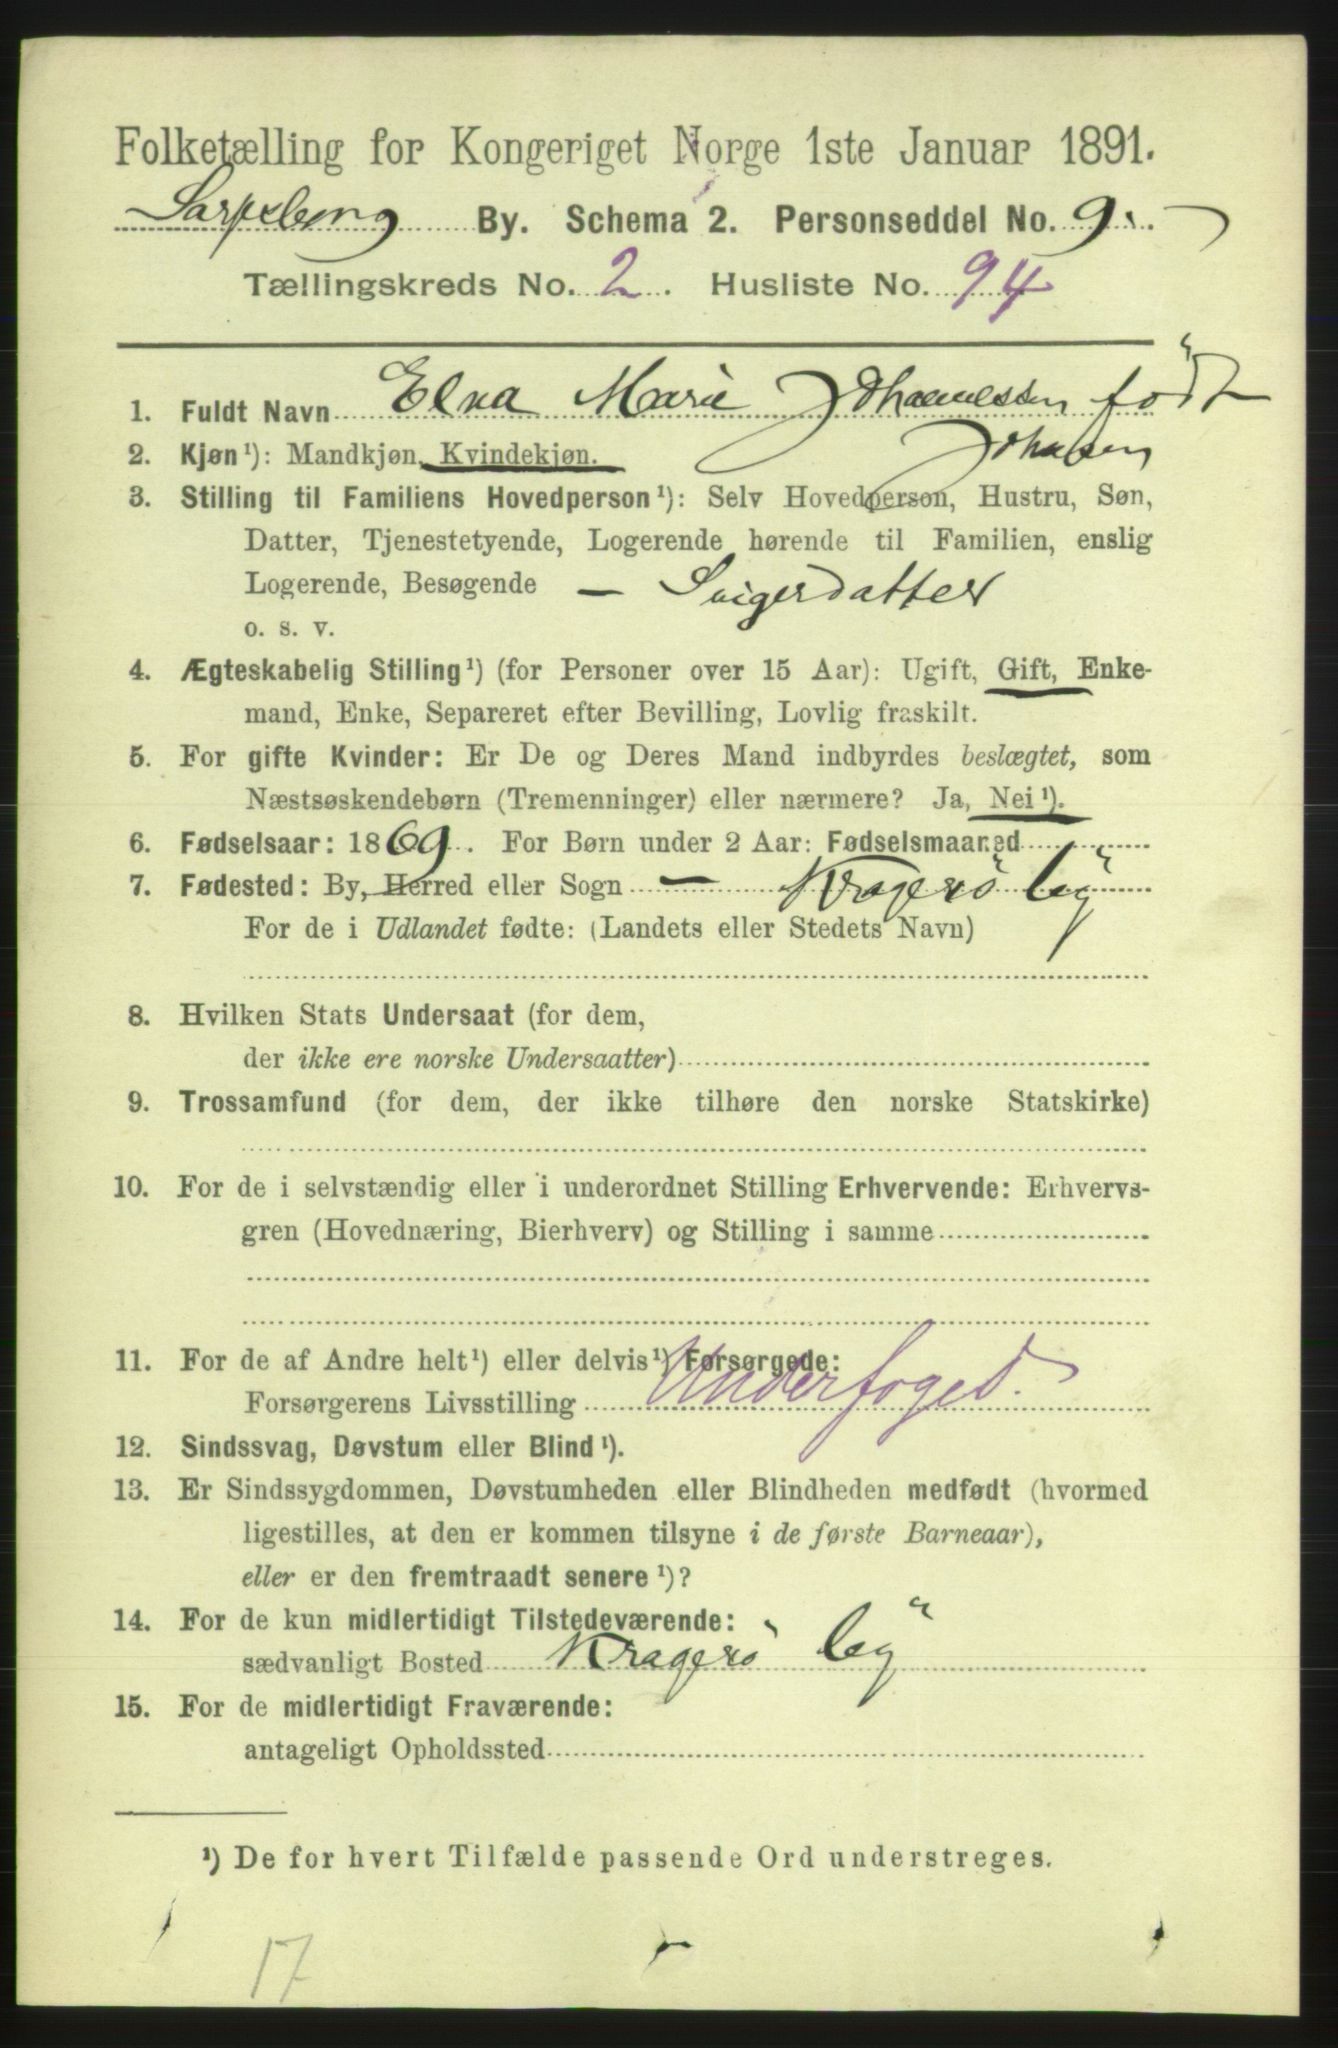 Folketælling for Kongeriget Norge 1ste Januar 1891.
Sarpsborg By. Schema 2. Personseddel No. 9.
Tællingskreds No. 2. Husliste No. 94
1. Fuldt Navn Elna Marie Johannessen født
Johnsen
2. Kjøn¹): Mandkjøn, Kvindekjøn.
3. Stilling til Familiens Hovedperson¹): Selv Hovedperson, Hustru, Søn,
Datter, Tjenestetyende, Logerende hørende til Familien, enslig
Logerende, Besøgende — Svigerdatter
o. s. v.
4. Ægteskabelig Stilling¹) (for Personer over 15 Aar): Ugift, Gift, Enke-
mand, Enke, Separeret efter Bevilling, Lovlig fraskilt.
5. For gifte Kvinder: Er De og Deres Mand indbyrdes beslægtet, som
Næstsøskendebørn (Tremenninger) eller nærmere? Ja, Nei¹).
6. Fødselsaar: 1869. For Børn under 2 Aar: Fødselsmaaned
7. Fødested: By, Herred eller Sogn — Kragerö by
For de i Udlandet fødte: (Landets eller Stedets Navn)
8. Hvilken Stats Undersaat (for dem,
der ikke ere norske Undersaatter)
9. Trossamfund (for dem, der ikke tilhøre den norske Statskirke)
10. For de i selvstændig eller i underordnet Stilling Erhvervende: Erhvervs-
gren (Hovednæring, Bierhverv) og Stilling i samme
11. For de af Andre helt¹) eller delvis¹) Forsørgede:
Forsørgerens Livsstilling Underfoged.
12. Sindssvag, Døvstum eller Blind¹).
13. Er Sindssygdommen, Døvstumheden eller Blindheden medfødt (hvormed
ligestilles, at den er kommen tilsyne i de første Barneaar),
eller er den fremtraadt senere¹)?
14. For de kun midlertidigt Tilstedeværende:
sædvanligt Bosted Kragerö by
15. For de midlertidigt Fraværende:
antageligt Opholdssted
¹) De for hvert Tilfælde passende Ord understreges.
17